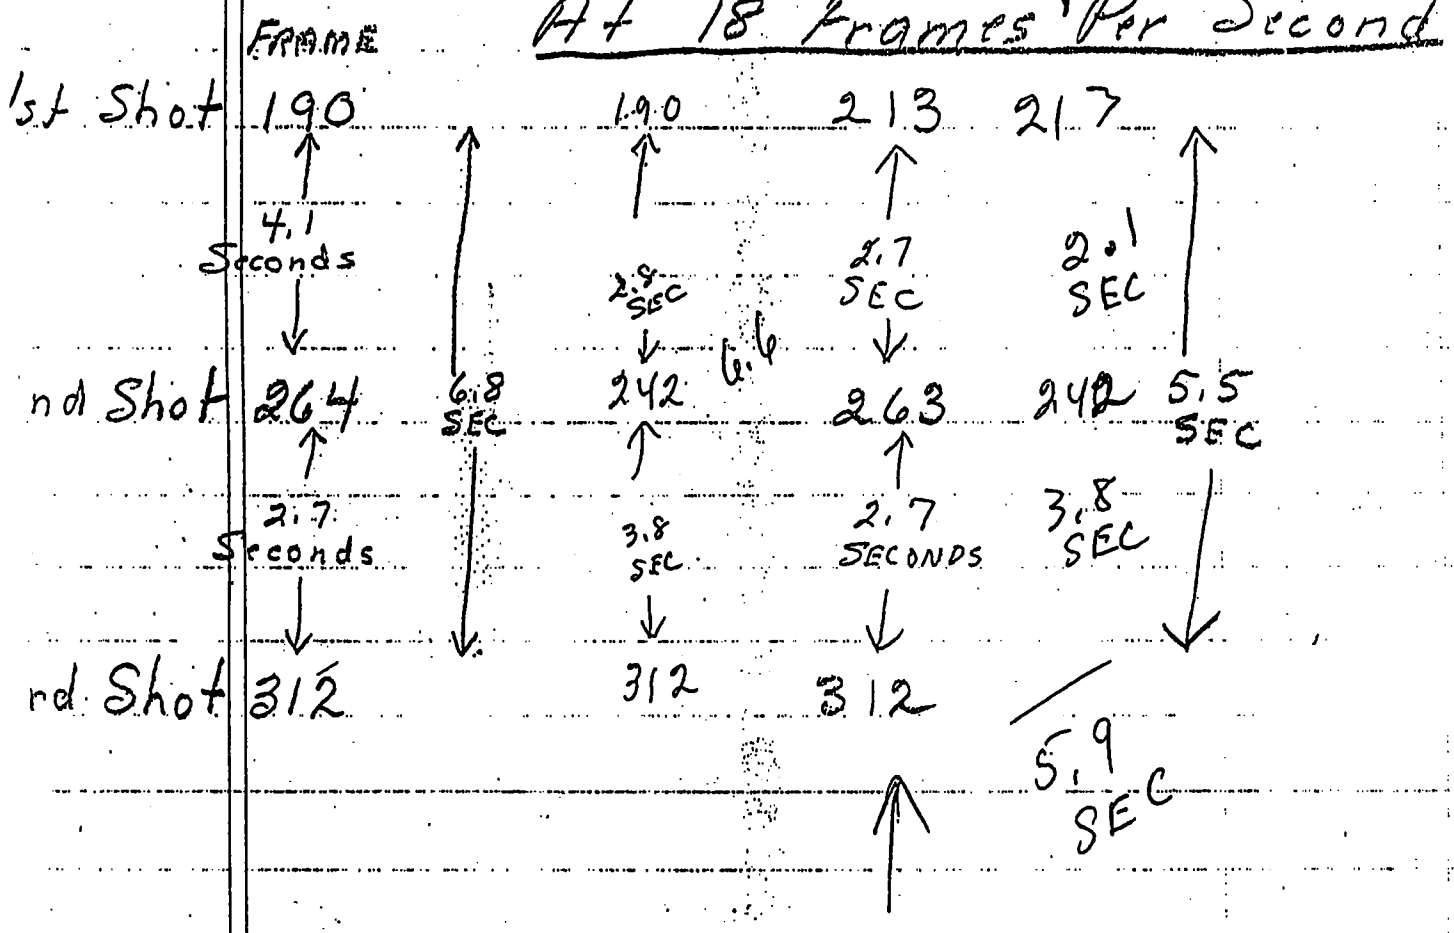 At 18 Frames Per Second
FRAME
1st Shot 190 190 213 217
4.1 Seconds 2.8 SEC 2.7 SEC 2.1 SEC
6.6
nd Shot 264 6.8 SEC 242 263 242 5.5 SEC
2.7 Seconds 3.8 SEC 2.7 SECONDS 3.8 SEC
rd Shot 312 312 312
5.9 SEC